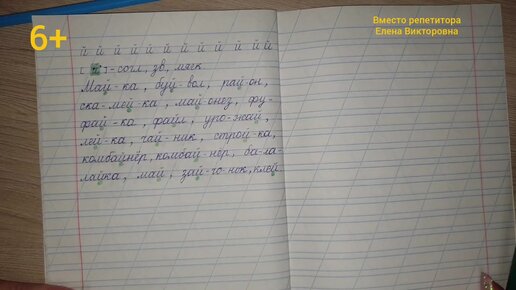 6+
Вместо репетитора
Елена Викторовна
й й й й й й й й й й й й
[й']-согл., зв., мягк.
Май-ка, буй-вол, рай-он,
ска-мей-ка, май-онез, фу-
фай-ка, файл, уро-жай,
лей-ка, чай-ник, строй-ка,
комбайнёр, комбай-нёр, ба-ла-
лайка, май, зай-чо-нок, клей.